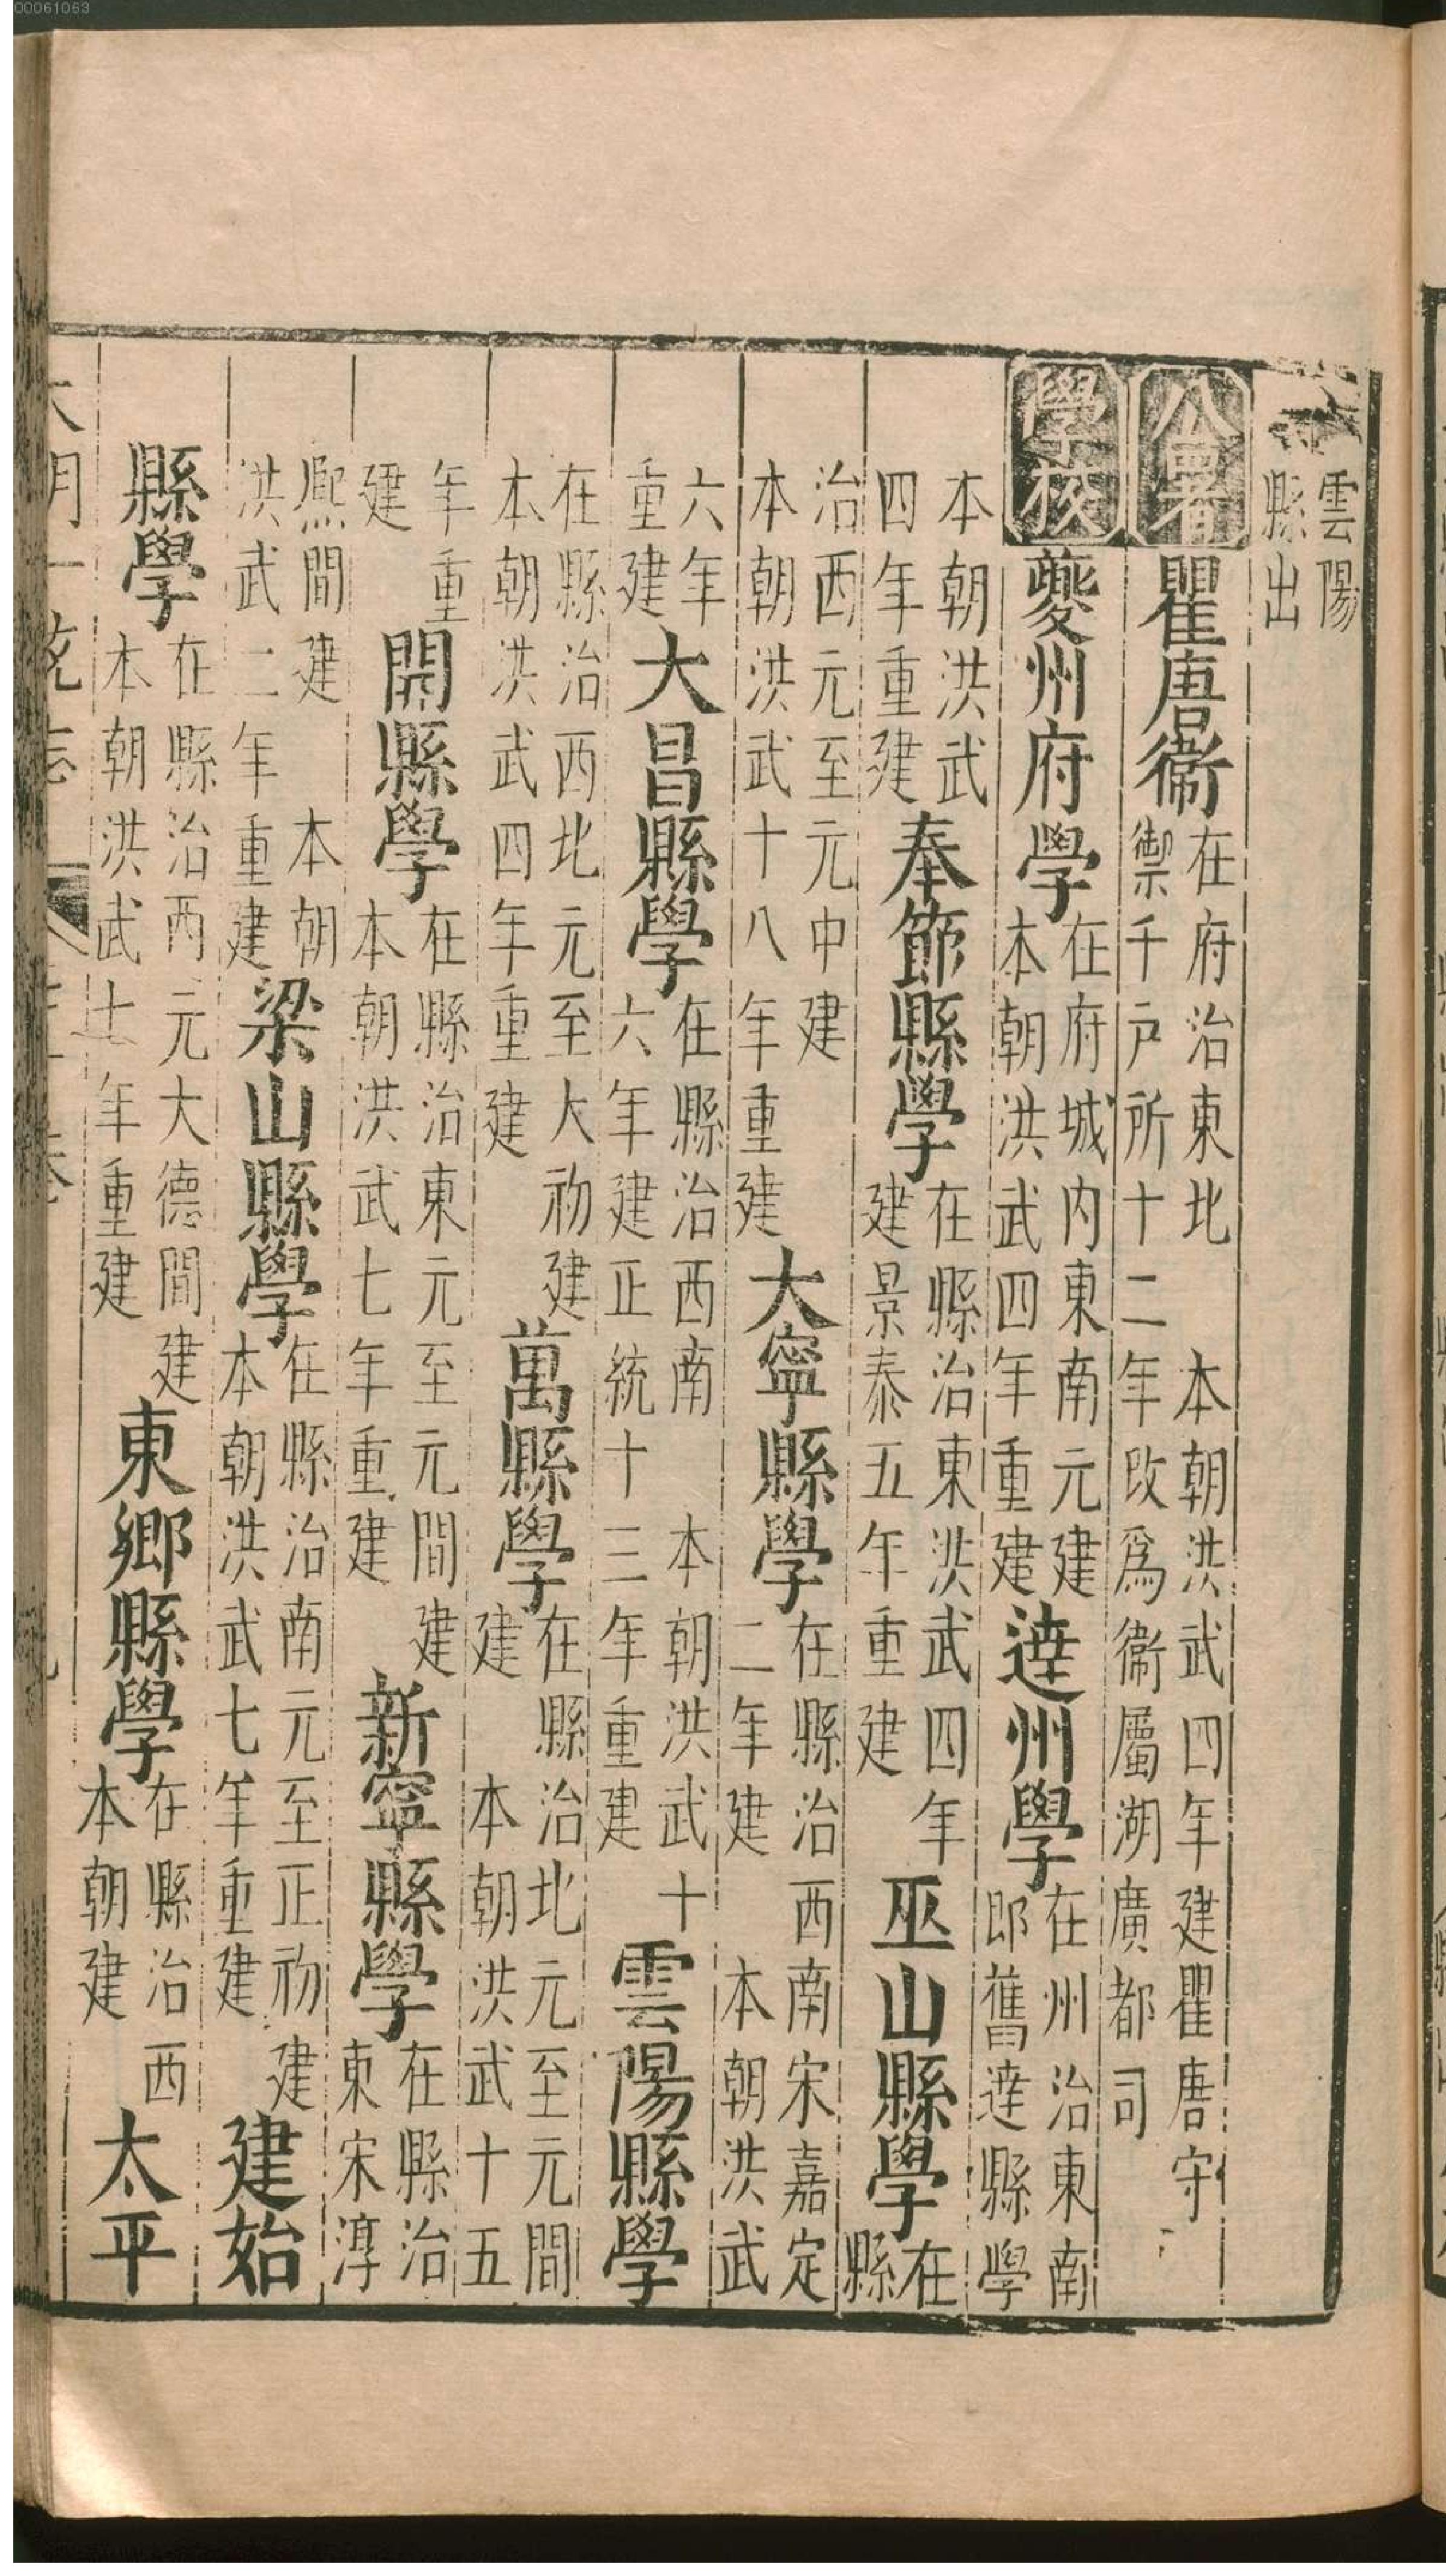 00061063
雲陽縣出
公署瞿唐衞在府治東北 本朝洪武四年建瞿唐守禦千戶所十二年改爲衞屬湖廣都司
學校夔州府學在府城内東南元建本朝洪武四年重建達州學在州治東南即舊達縣學
本朝洪武四年重建奉節縣學在縣治東洪武四年建景泰五年重建巫山縣學在縣
治西元至元中建本朝洪武十八年重建大寧縣學在縣治西南宋嘉定二年建 本朝洪武
六年重建大昌縣學在縣治西南 本朝洪武十六年建正統十三年重建雲陽縣學
在縣治西北元至大初建本朝洪武四年重建萬縣學在縣治北元至元間建 本朝洪武十五
年重建開縣學在縣治東元至元間建本朝洪武七年重建新寧縣學在縣治東宋淳
熈間建 本朝洪武二年重建梁山縣學在縣治南元至正初建本朝洪武七年重建建始
縣學在縣治西元大德間建本朝洪武七年重建東鄉縣學在縣治西本朝建太平
大明一統志